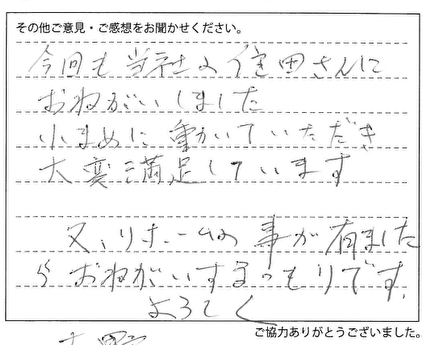 その他ご意見・ご感想をお聞かせください。
今回も当社の住田さんに
おねがいしました
小まめに動いていただき
大変満足しています
又、リホームの事が有ました
らおねがいするつもりです.
よろしく
ご協力ありがとうございました。